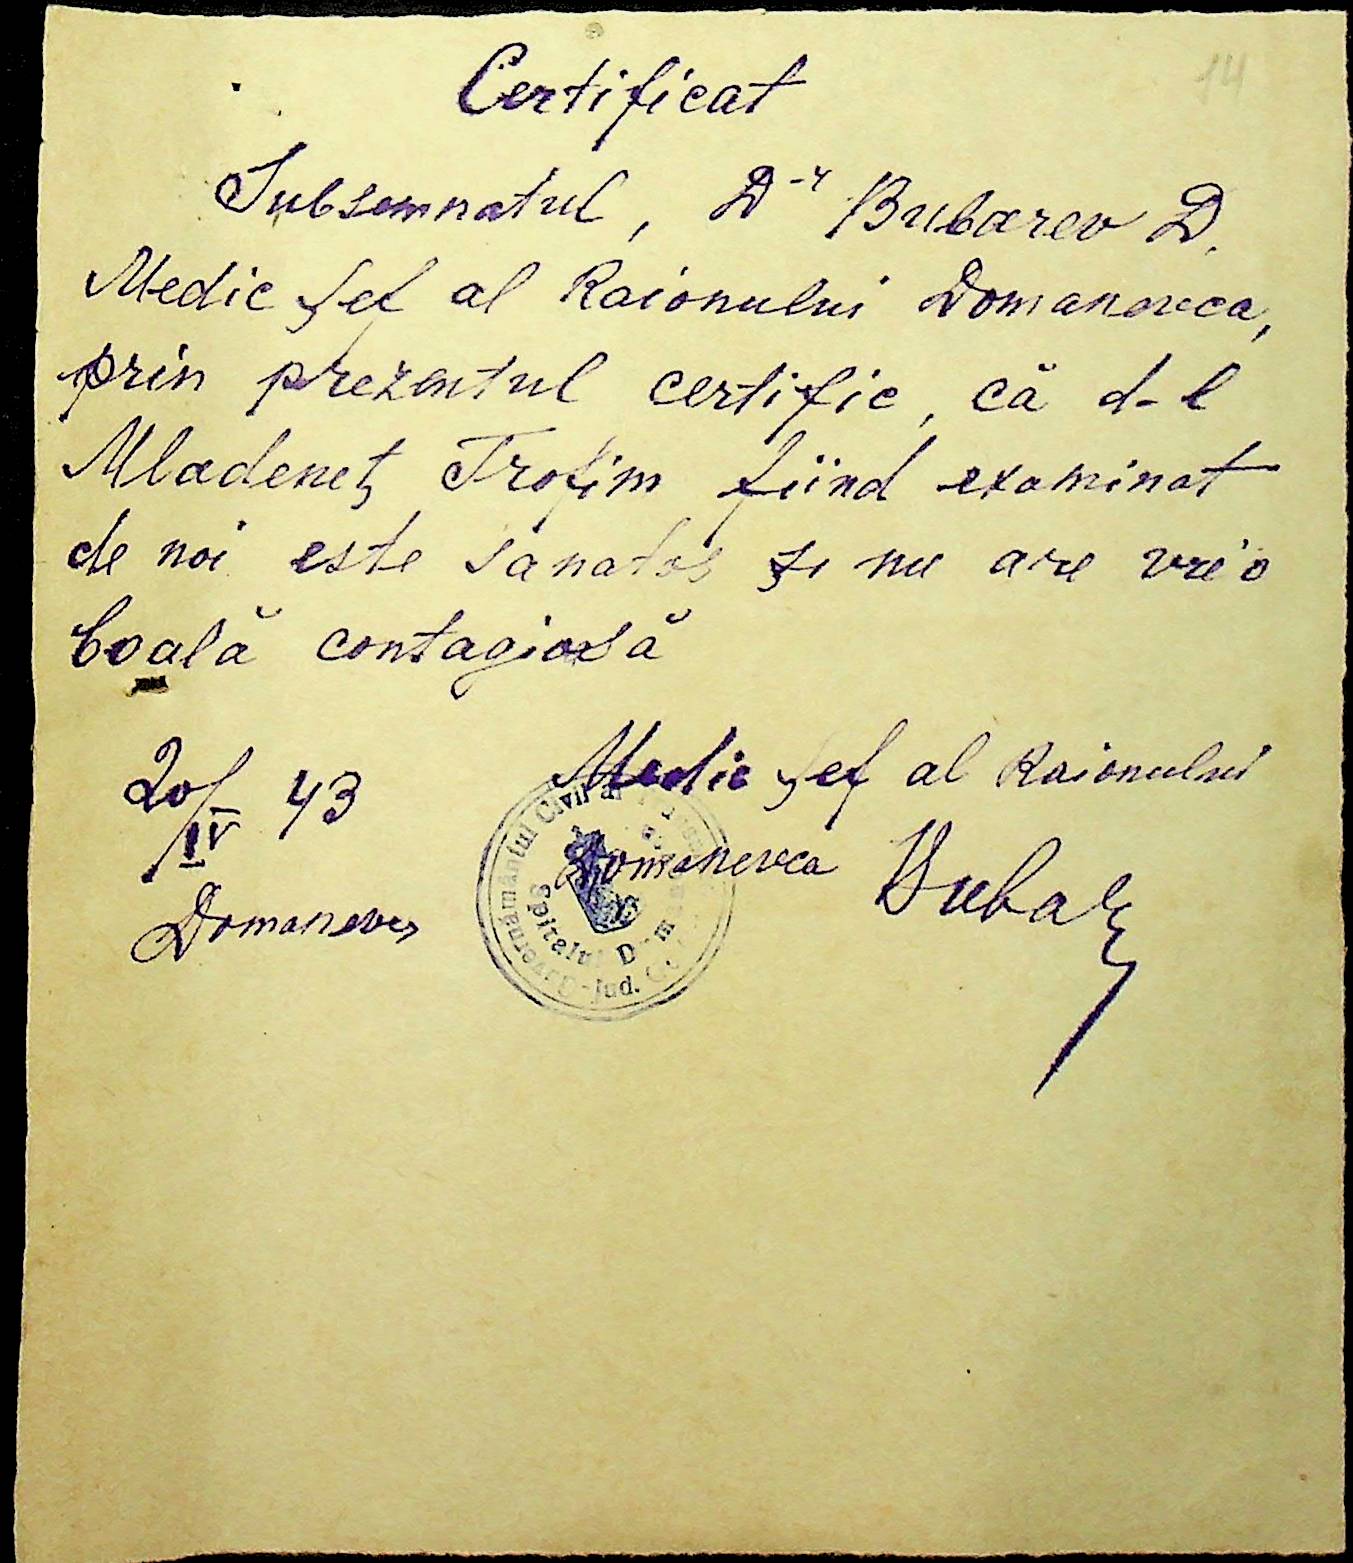 14
Certificat
Subsemnatul, D-r Bubarev D.
Medic șef al Raionului Domanevca,
prin prezentul certific, că d-l
Mladeneț Trofim fiind examinat
de noi este sanatos și nu are vre'o
boală contagiosă
20/IV 43
Medic șef al Raionului
Domanevca Bubar
Domanevca
Guvernământul Civil al
Jud.
Spitalul